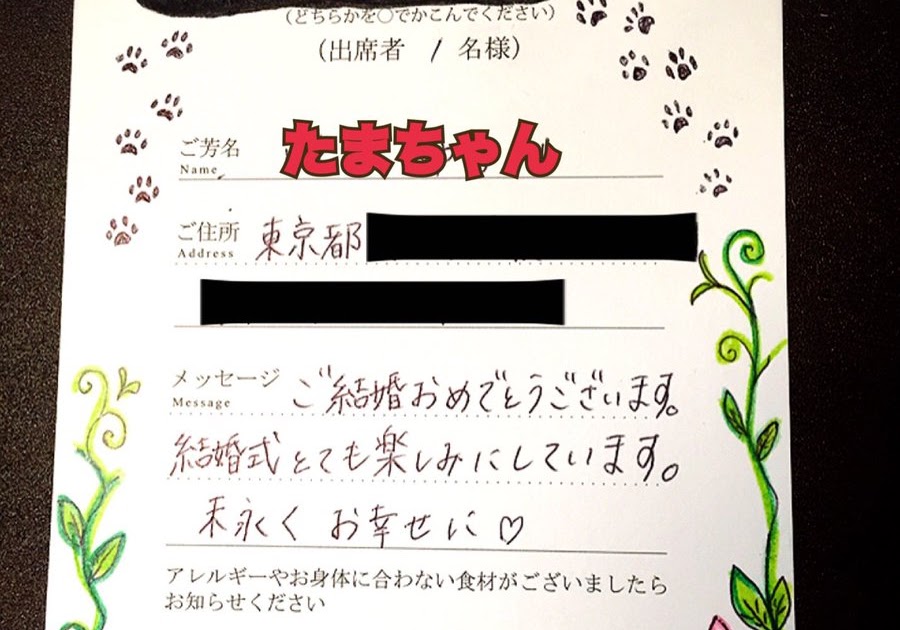 (どちらかを○でかこんでください)
(出席者 1 名様)
ご芳名 たまちゃん
Name
ご住所 東京都
Address
メッセージ ご結婚おめでとうございます。
Message
結婚式とても楽しみにしています。
末永く お幸せに♡
アレルギーやお身体に合わない食材がございましたら
お知らせください